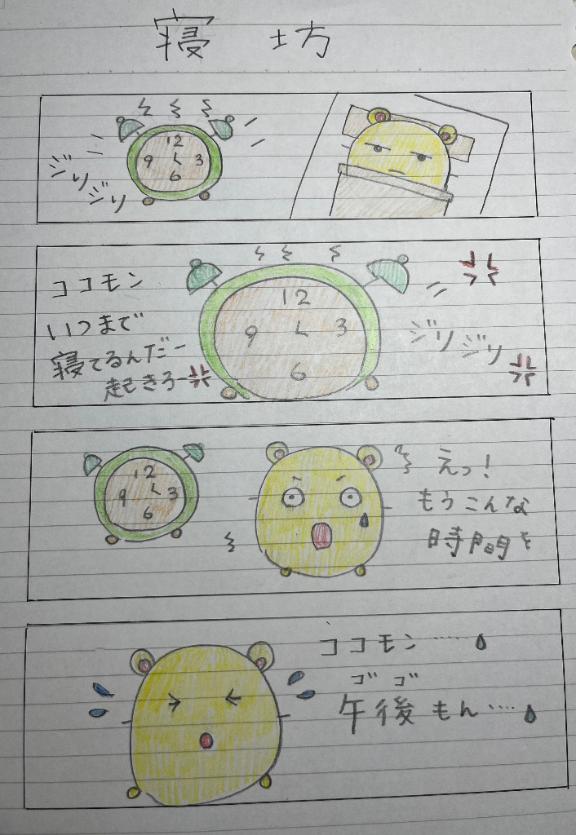 寝坊
12
9 3
6
ジリ
ジリ
ココモン
いつまで
寝てるんだー
起きろー
12
9 3
6
ジリジリ
12
9 3
6
えっ!
もうこんな
時間を
ココモン……
ゴゴ
午後もん…